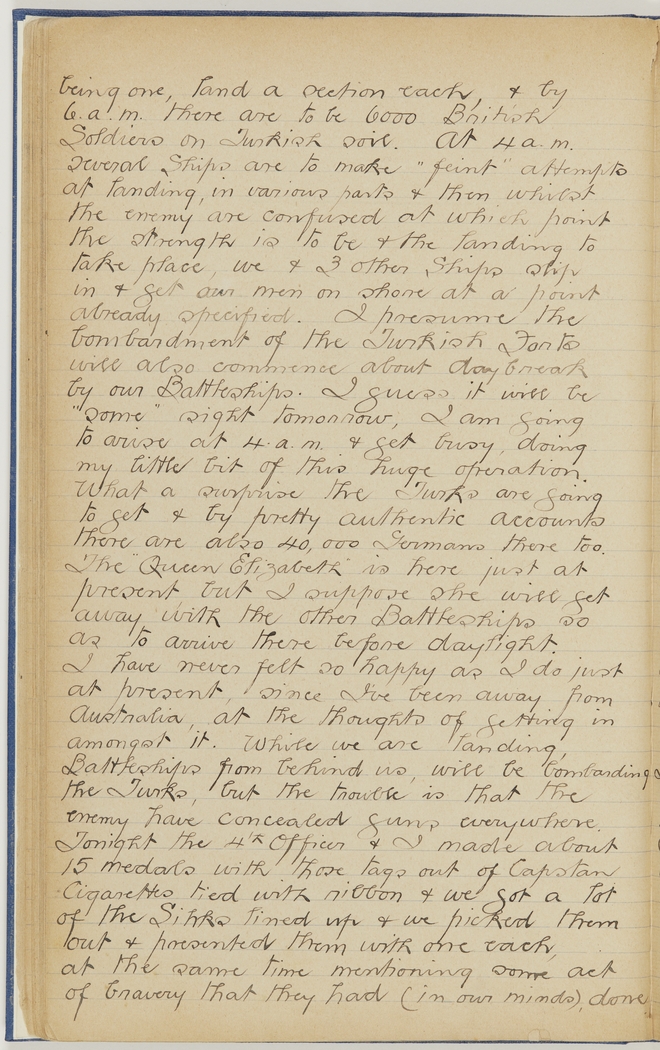 being one, land a section each, & by
6.a.m. there are to be 6000 British
Soldiers on Turkish soil. At 4 a.m.
several Ships are to make "feint" attempts
at landing, in various parts & then whilst
the enemy are confused at which point
the strength is to be & the landing to
take place, we & 3 other Ships slip
in & get our men on shore at a point
already specified. I presume the
bombardment of the Turkish Forts
will also commence about daybreak
by our Battleships. I guess it will be
"some" sight tomorrow, I am going
to arise at 4.a.m. & get busy, doing
my little bit of this huge operation.
What a surprise the Turks are going
to get & by pretty authentic accounts
there are also 40,000 Germans there too.
The "Queen Elizabeth" is here just at
present but I suppose she will get
away with the other Battleships so
as to arrive there before daylight.
I have never felt so happy as I do just
at present, since I've been away from
Australia, at the thoughts of getting in
amongst it. While we are landing,
Battleships from behind us, will be bombarding
the Turks, but the trouble is that the
enemy have concealed guns everywhere.
Tonight the 4th Officer & I made about
15 medals with those tags out of Capstan
Cigarettes tied with ribbon & we got a lot
of the Sihks lined up & we picked them
out & presented them with one each,
at the same time mentioning some act
of bravery that they had (in our minds), done